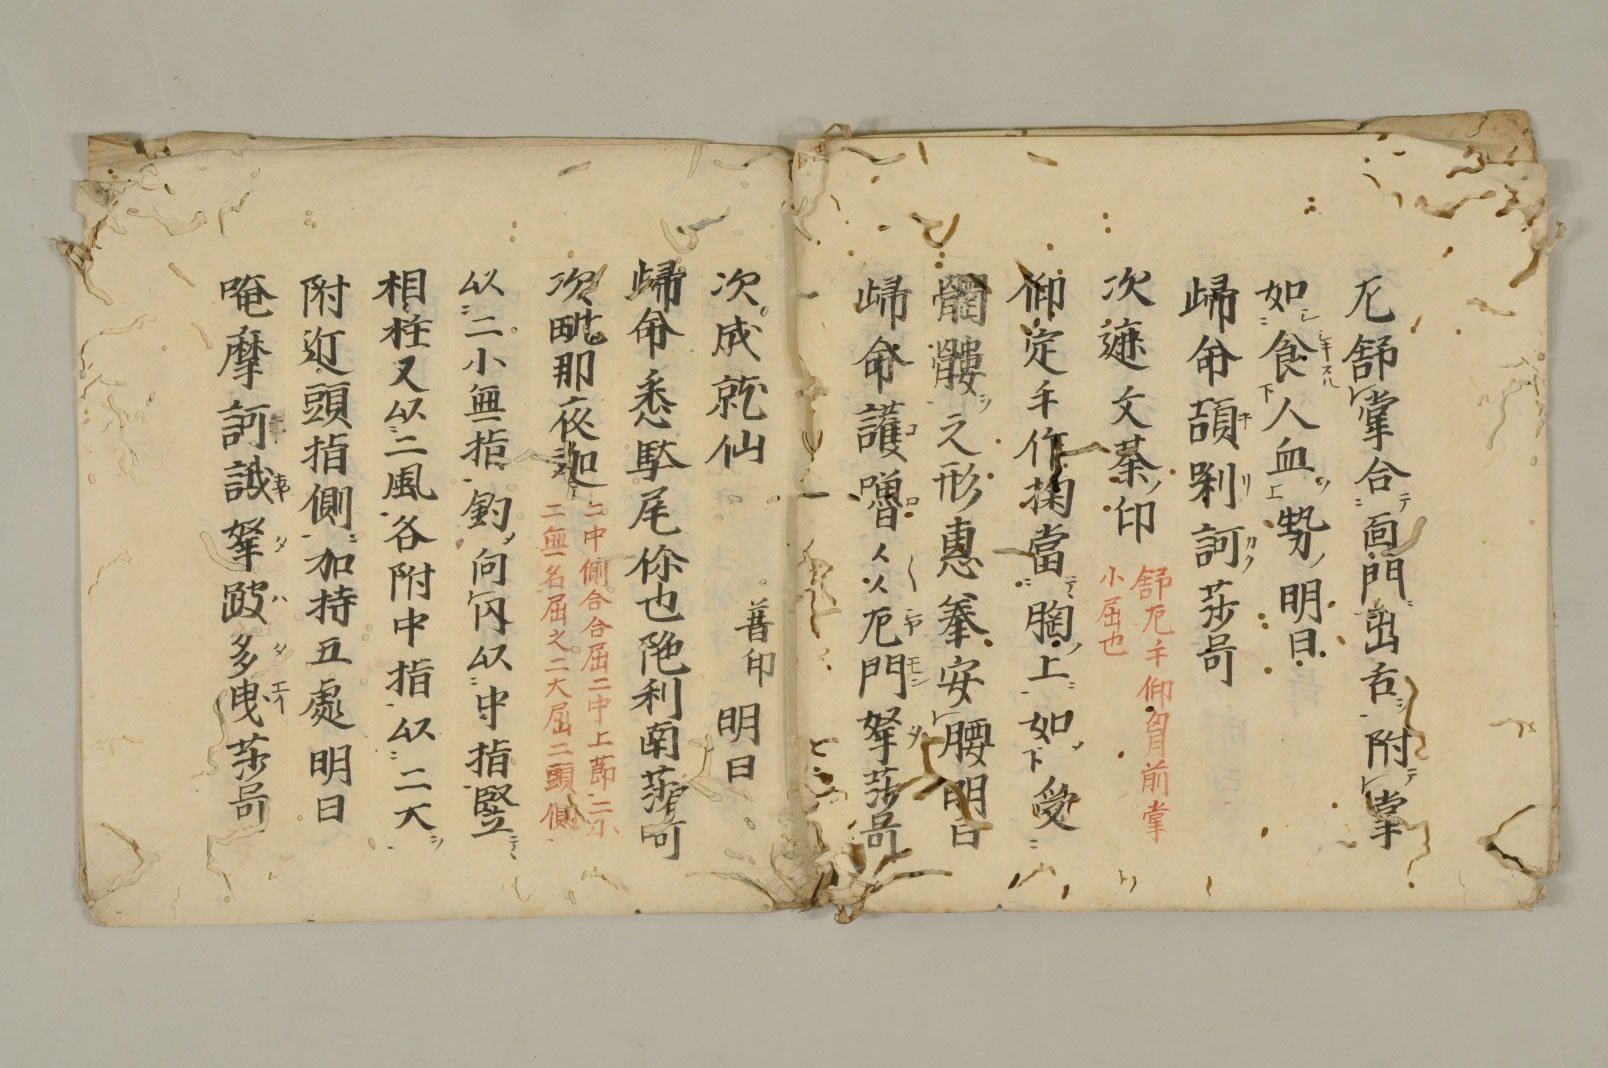 尼舒掌合面門出舌附掌
如食人血勢明日
歸命頡唎訶莎呵
次遮文荼印
舒尼手仰肩前掌
小屈也
仰定手作掬當胸上如受
髑髏之形惠拳安腰明日
歸命護嚕々々尼門拏莎呵
次成就仙 普印 明日
歸命悉馱尾你也陁利南莎呵
次毗那夜迦
二中側合合屈二中上節二小
二無名屈之二大屈二頭側
以二小無指鈎向内以中指竪
相拄又以二風各附中指以二大
附近頭指側加持五處明日
唵摩訶誐拏跛多曳莎呵